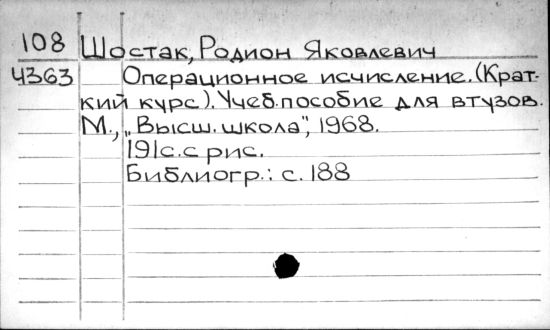 108 Шостак, Родион Яковлевич
4363 Операционное исчисление. (Крат-
кий курс). Учеб. пособие для втузов.
М., „Высш. школа", 1968.
191с. с рис.
Библиогр.: с. 188